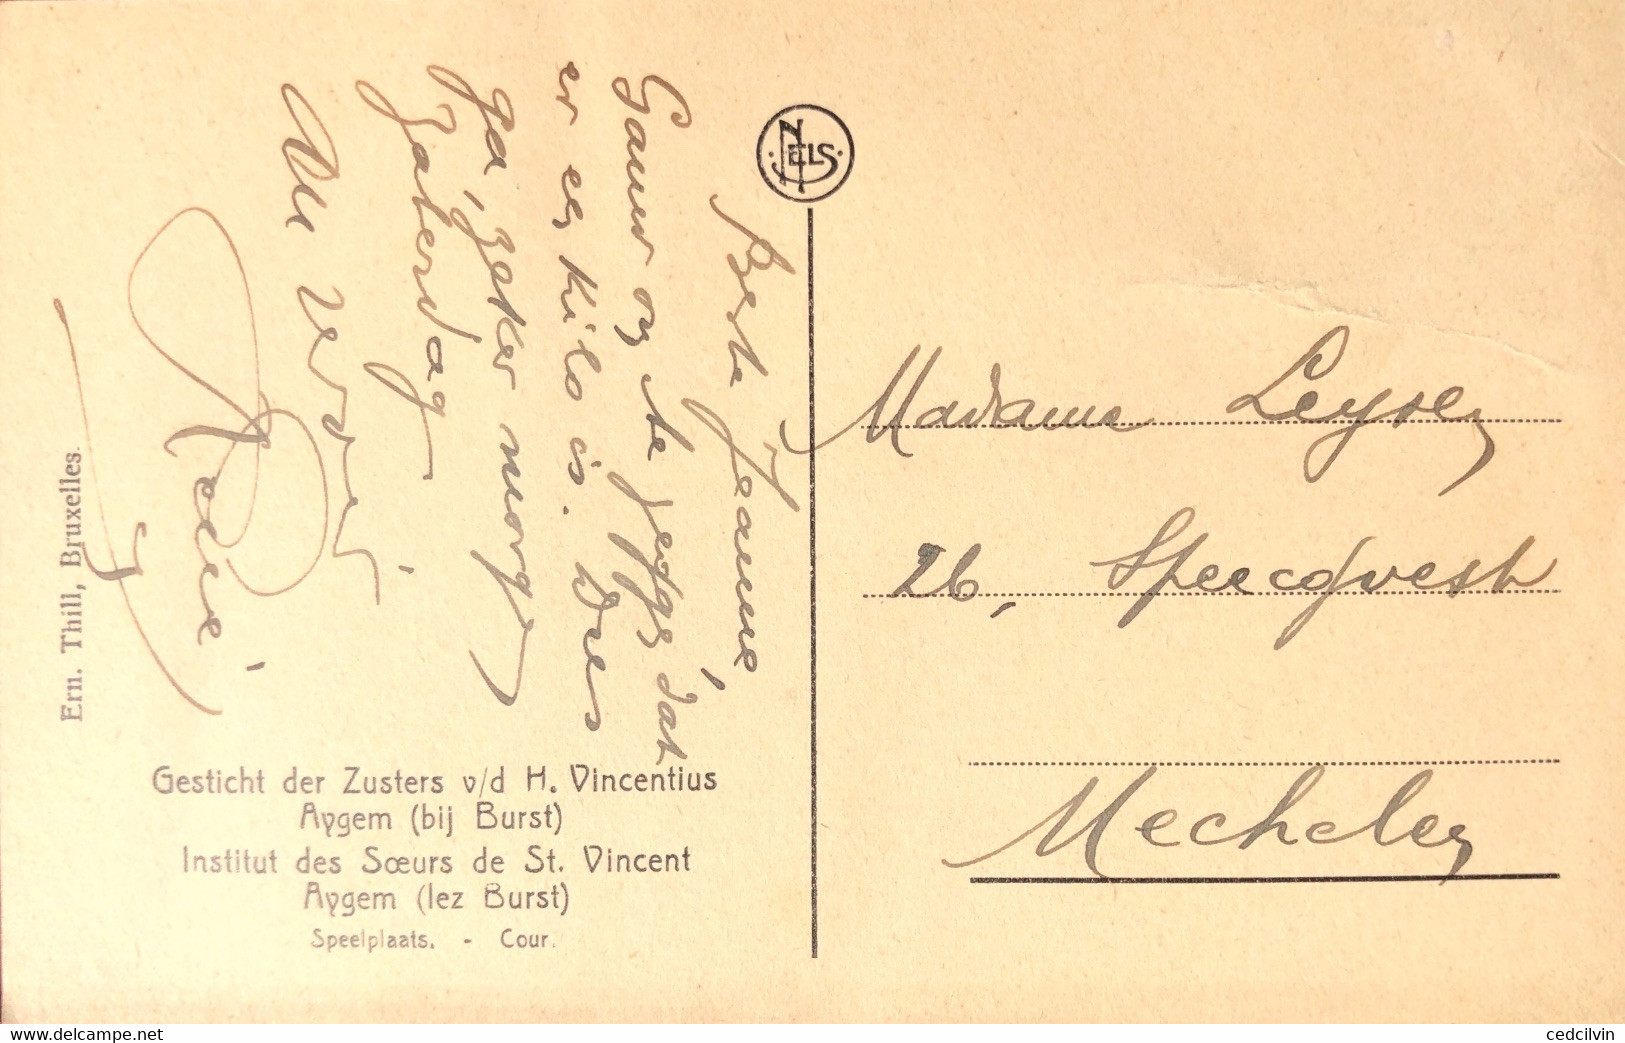 Beste Jeanne,
Gauw om te zeggen dat
er een kilo is. Dus
ga, zeker morgen
Zaterdag.
NELS
Ern. Thill, Bruxelles.
Gesticht der Zusters v/d H. Vincentius
Aygem (bij Burst)
Institut des Sœurs de St. Vincent
Aygem (lez Burst)
Speelplaats. - Cour.
Madame Leysen
26, Speecqvest
Mechelen
delcampe.net
cedcilvin